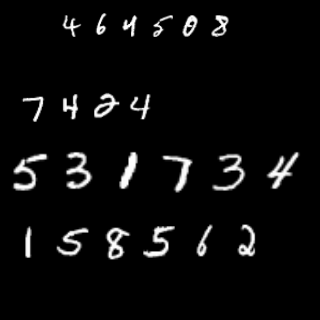 4 6 4 5 0 8
7 4 2 4
5 3 1 7 3 4
1 5 8 5 6 2